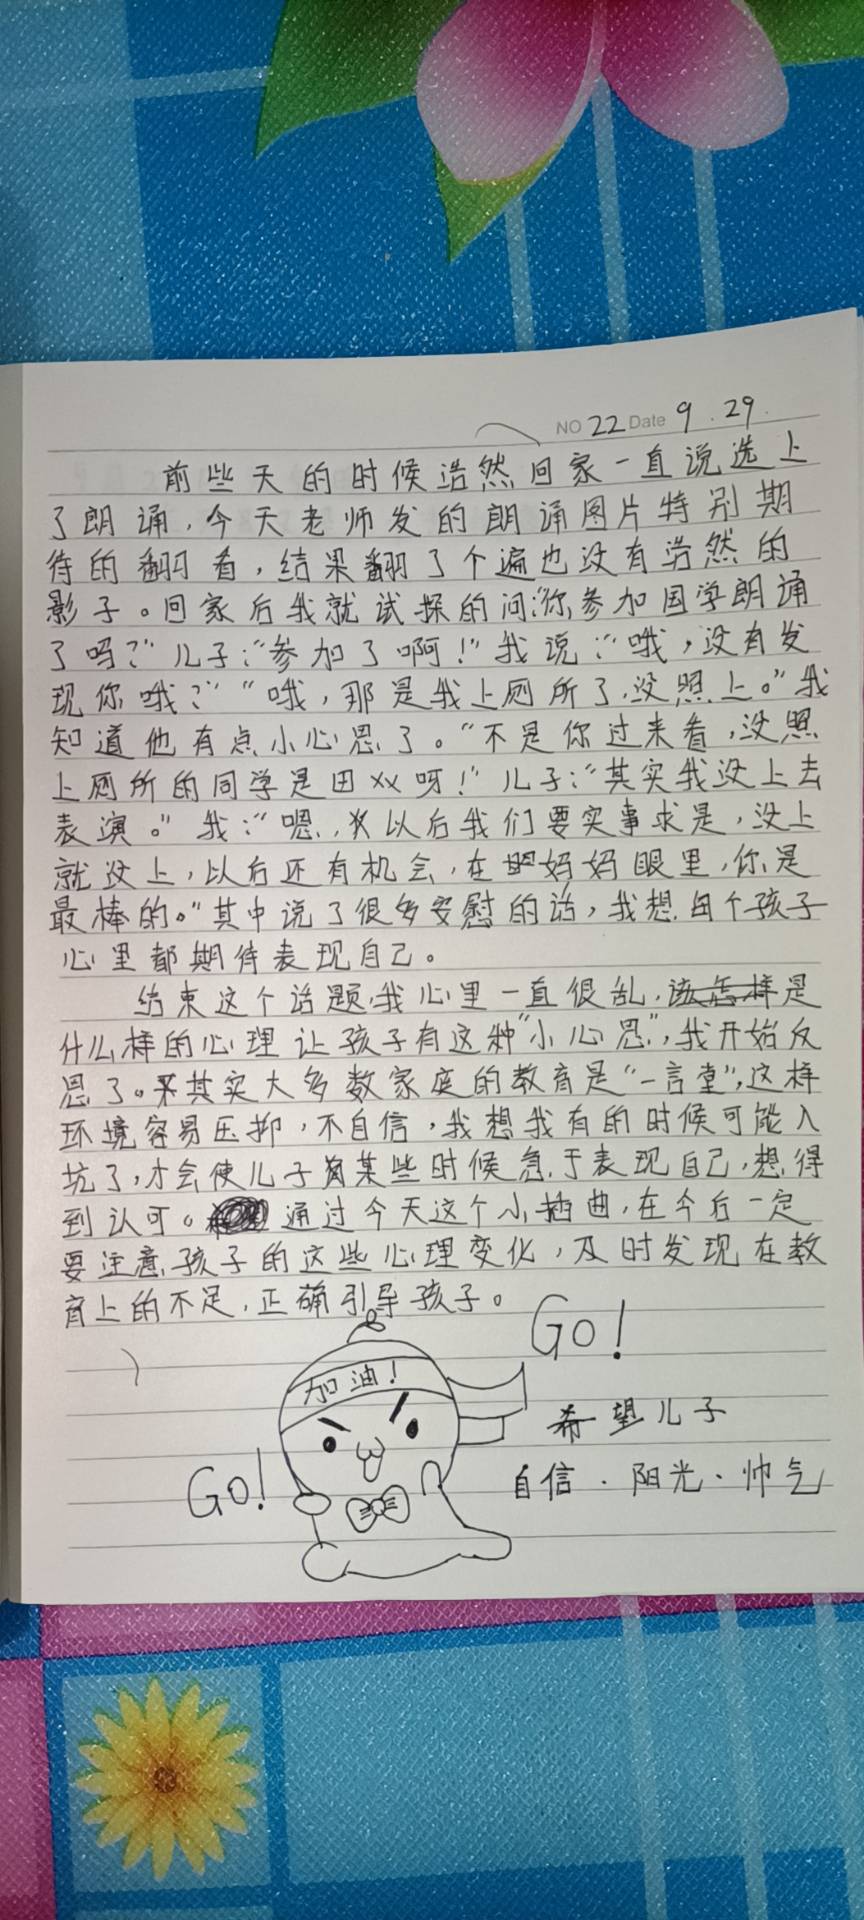 NO 22 Date 9.29.
前些天的时候浩然回家一直说选上
了朗诵，今天老师发的朗诵图片特别期
待的翻看，结果翻了个遍也没有浩然的
影子。回家后我就试探的问：“你参加国学朗诵
了吗？”儿子：“参加了啊！”我说：“哦，没有发
现你哦？”“哦，那是我上厕所了，没照上。”我
知道他有点小心思了。“不是你过来看，没照
上厕所的同学是田xx呀！”儿子：“其实我没上去
表演。”我：“嗯，以后我们要实事求是，没上
就没上，以后还有机会，在妈妈眼里，你是
最棒的。”其中说了很多安慰的话，我想每个孩子
心里都期待表现自己。
结束这个话题，我心里一直很乱，该怎样是
什么样的心理让孩子有这种“小心思”，我开始反
思了。其实大多数家庭的教育是“一言堂”，这样
环境容易压抑，不自信，我想我有的时候可能入
坑了，才会使儿子某些时候急于表现自己，想得
到认可。通过今天这个小插曲，在今后一定
要注意孩子的这些心理变化，及时发现在教
育上的不足，正确引导孩子。
GO!
加油！
希望儿子
GO!
自信．阳光．帅气